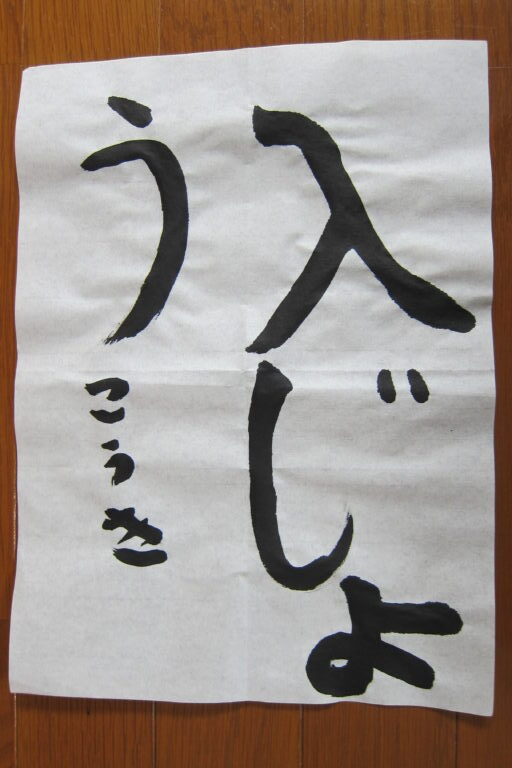 入じょ
う こうき